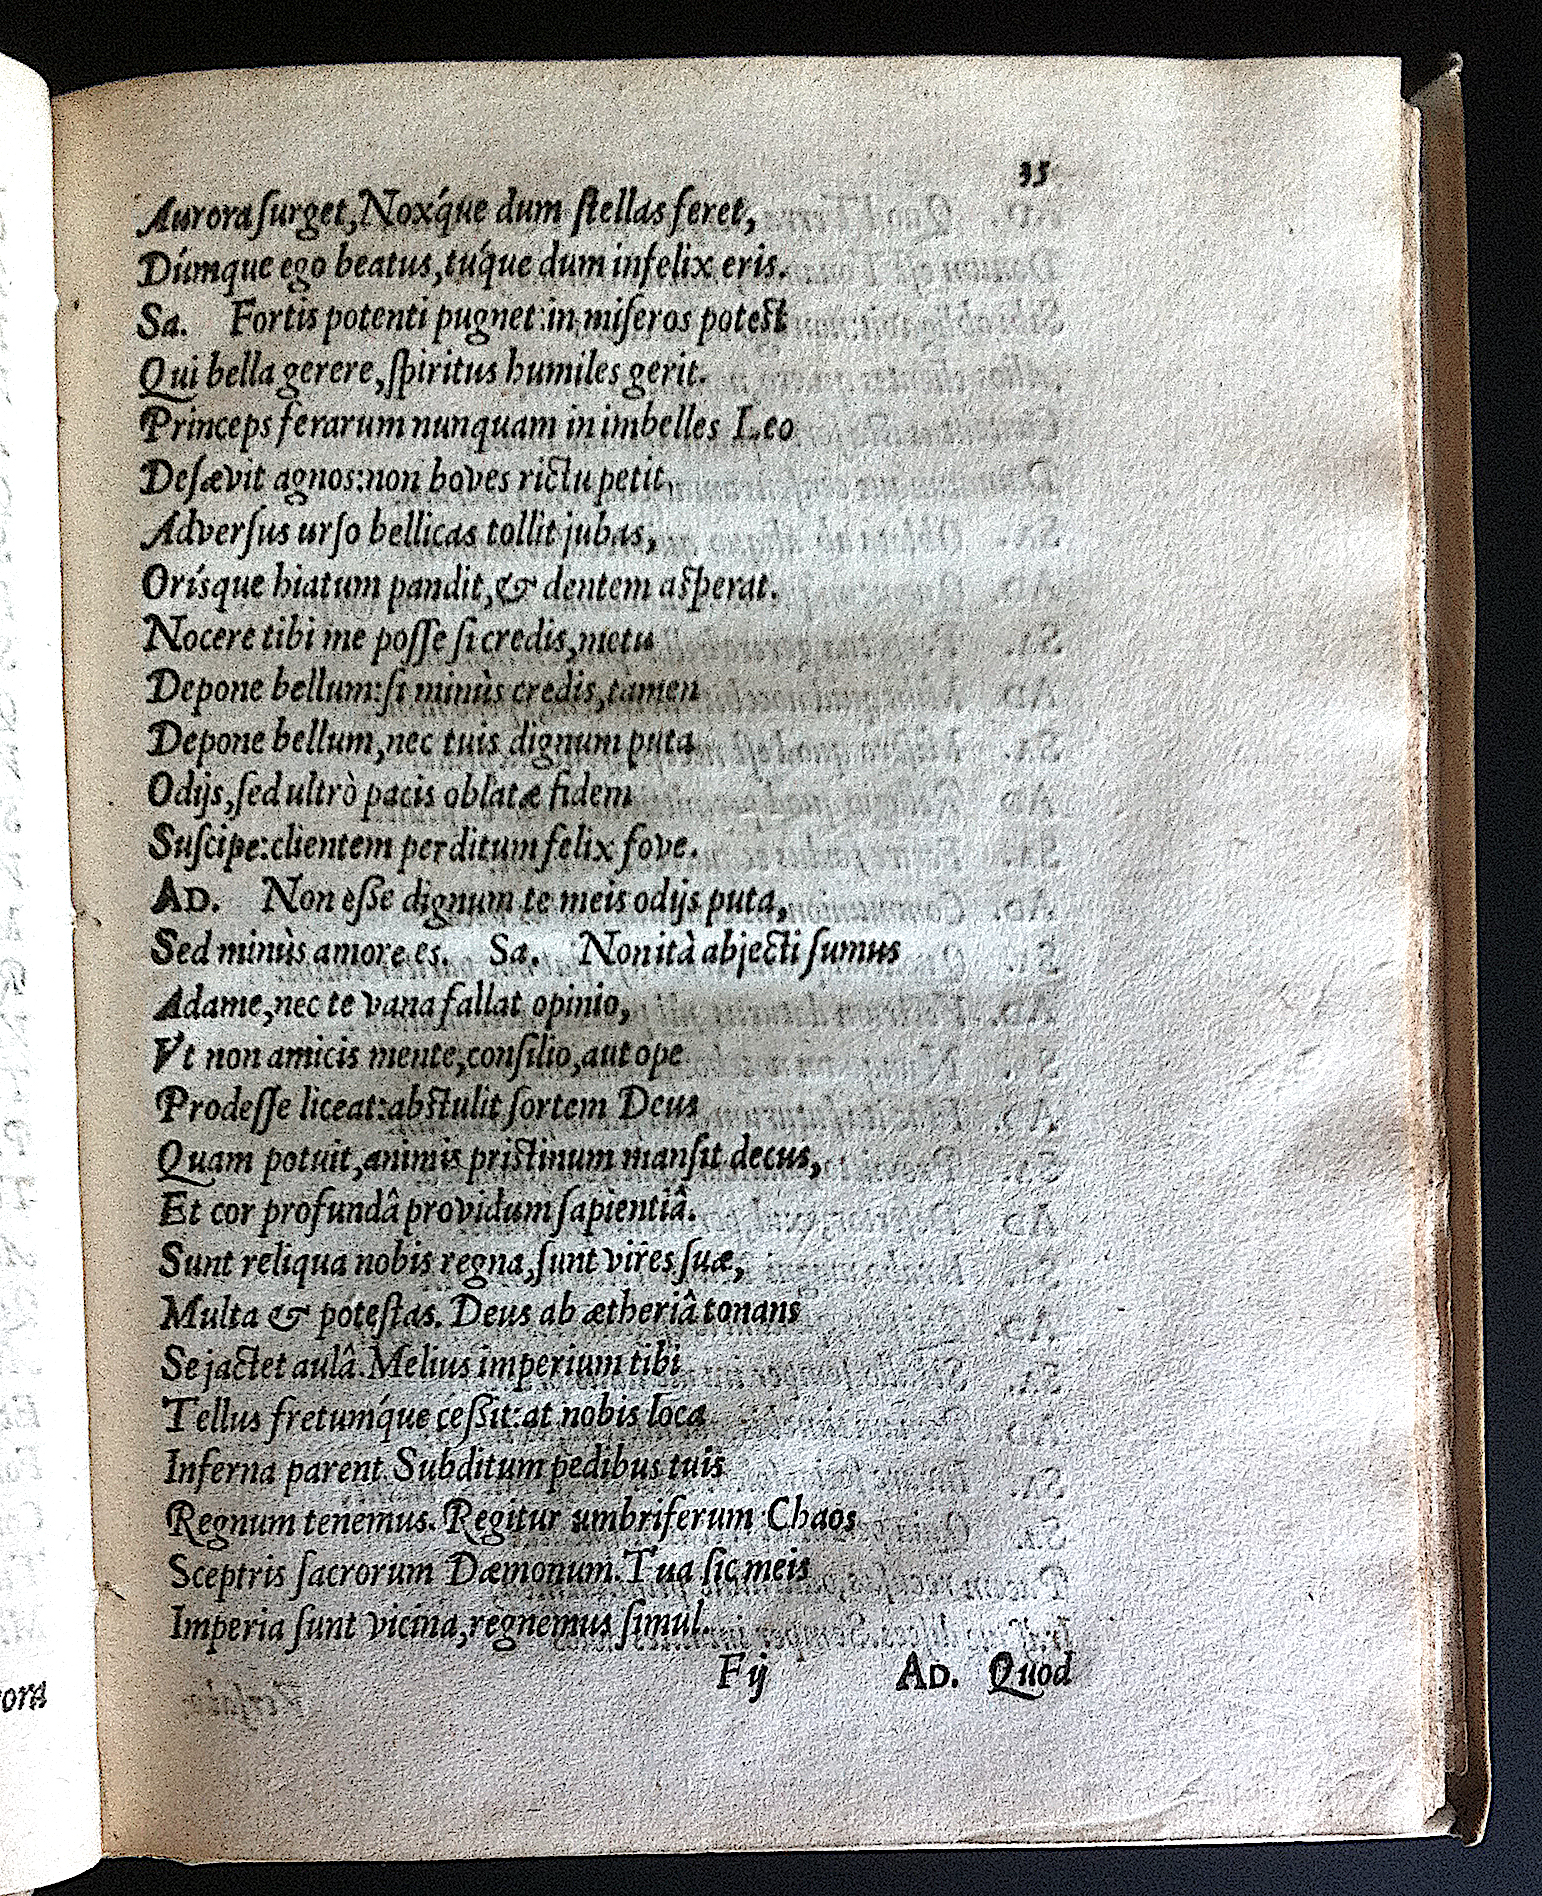 35
Aurora surget, Noxq́ue dum stellas feret,
Dúmque ego beatus, tuq́ue dum infelix eris.
Sa. Fortis potenti pugnet: in miseros potest
Qui bella gerere, spiritus humiles gerit.
Princeps ferarum nunquam in imbelles Leo
Desævit agnos: non boves rictu petit,
Adversus urso bellicas tollit jubas,
Orísque hiatum pandit, & dentem asperat.
Nocere tibi me posse si credis, metu
Depone bellum: si minùs credis, tamen
Depone bellum, nec tuis dignum puta
Odijs, sed ultrò pacis oblatæ fidem
Suscipe: clientem perditum felix fove.
AD. Non esse dignum te meis odijs puta,
Sed minùs amore es. Sa. Non ità abjecti sumus
Adame, nec te vana fallat opinio,
Vt non amicis mente, consilio, aut ope
Prodesse liceat: abstulit sortem Deus
Quam potuit, animis pristinum mansit decus,
Et cor profundâ providum sapientiâ.
Sunt reliqua nobis regna, sunt vires suæ,
Multa & potestas. Deus ab ætheriâ tonans
Se jactet aulâ. Melius imperium tibi
Tellus fretumq́ue cessit: at nobis loca
Inferna parent. Subditum pedibus tuis
Regnum tenemus. Regitur umbriferum Chaos
Sceptris sacrorum Dæmonum. Tua sic meis
Imperia sunt vicina, regnemus simul.
Fij AD. Quod